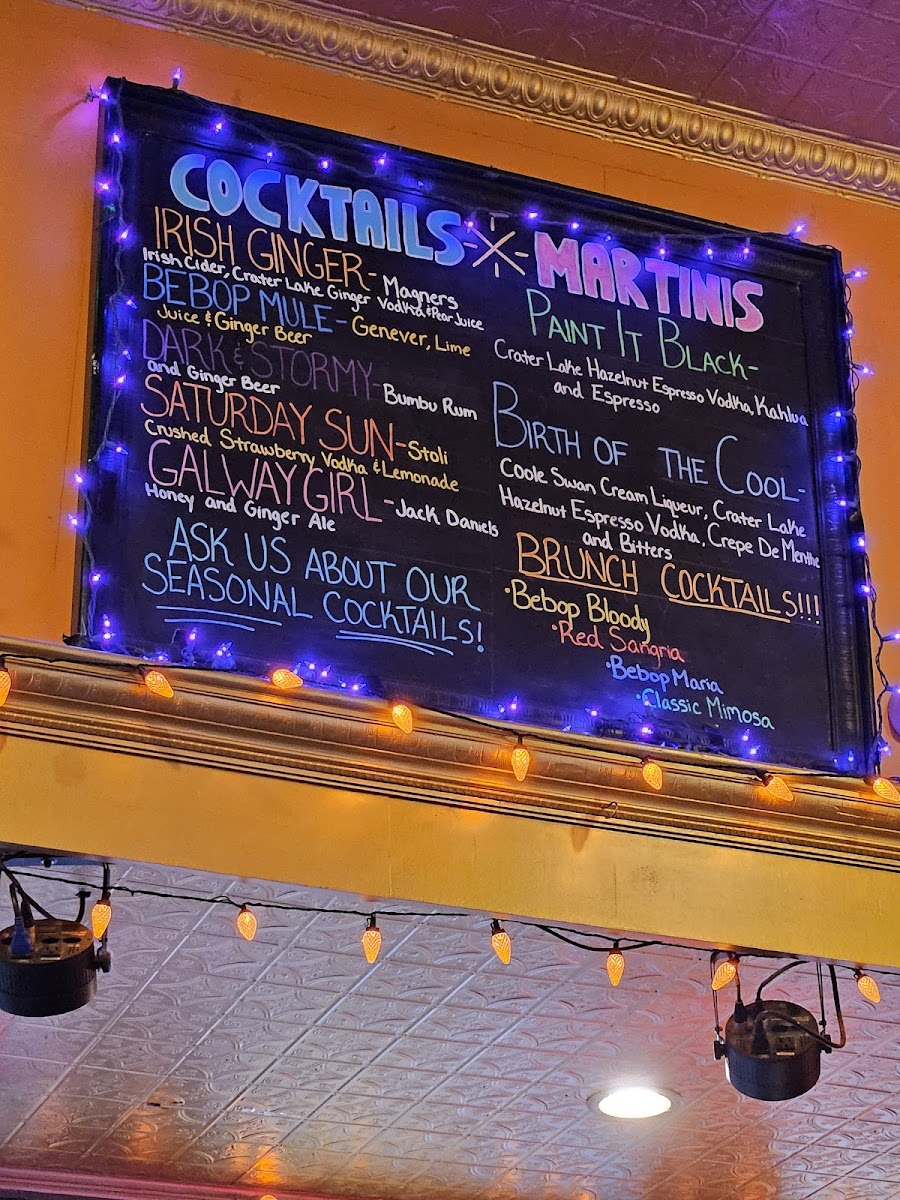 COCKTAILS
IRISH GINGER- Magners
Irish Cider, Crater Lake Ginger Vodka & Pear Juice
BEBOP MULE- Genever, Lime
Juice & Ginger Beer
DARK & STORMY- Bumbu Rum
and Ginger Beer
SATURDAY SUN-Stoli
Crushed Strawberry Vodka & Lemonade
GALWAY GIRL-Jack Daniels
Honey and Ginger Ale
ASK US ABOUT OUR
SEASONAL COCKTAILS!
MARTINIS
PAINT IT BLACK-
Crater Lake Hazelnut Espresso Vodka, Kahlua
and Espresso
BIRTH OF THE COOL-
Coole Swan Cream Liqueur, Crater Lake
Hazelnut Espresso Vodka, Crepe De Menthe
and Bitters
BRUNCH COCKTAILS!!!
•Bebop Bloody
•Red Sangria
•Bebop Maria
•Classic Mimosa